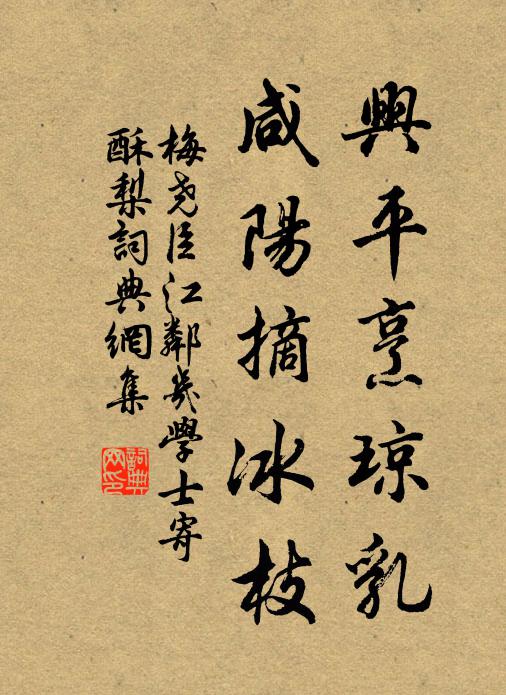 興平烹琼乳
咸陽摘冰枝
梅堯臣江鄰幾學士寄
酥梨詞典網集
詞典网印